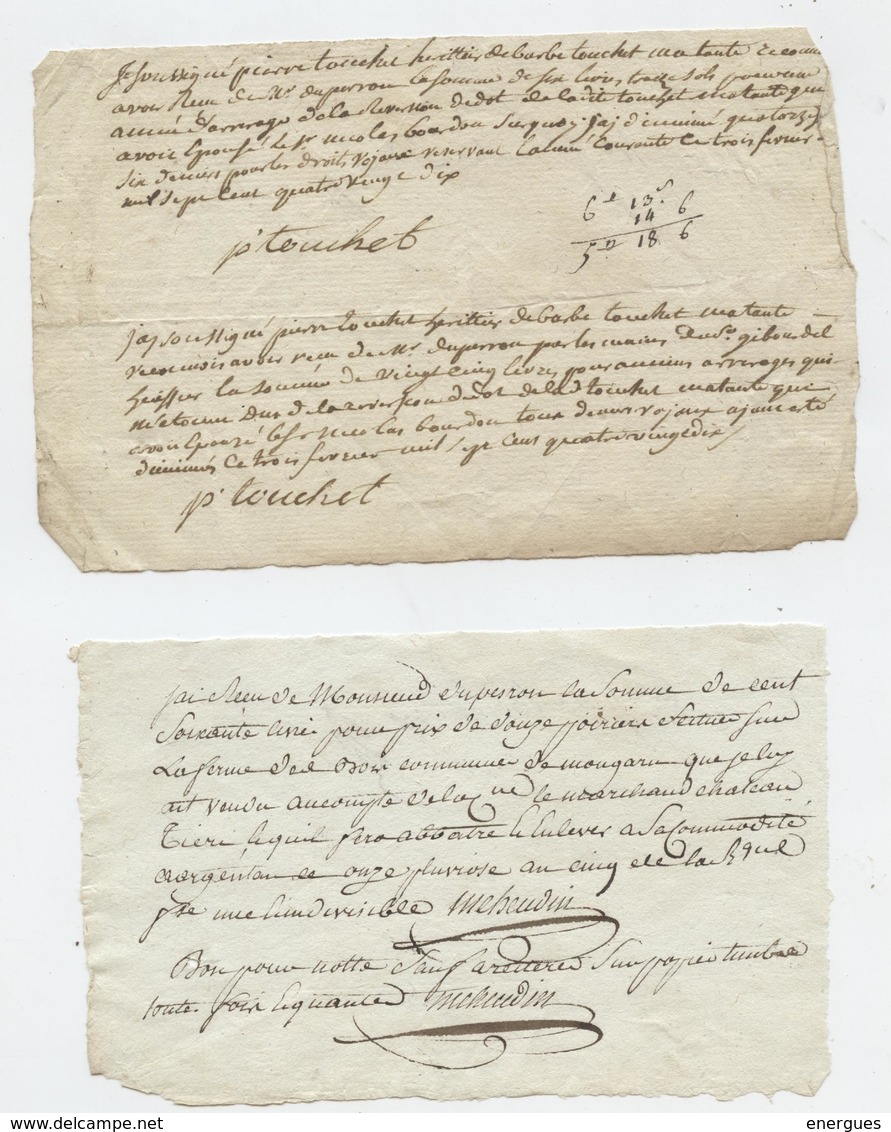 Je soussigné pierre touchet heritier de barbe touchet ma tante reconnu
avoir Receu de Mr duperron la somme de six livres treize sols pour une
année d'arrerage de la Reversion de dot de la dite touchet ma tante que
avoit Epousé le sr nicolas bourdon Surquoy j'ai diminué quatorze
six deniers pour les droits rojaux reservant l'année Courante Ce trois fevrier
mil sept Cent quatre vingt dix
6 13s
14 6
5 18 6
p touchet
jay soussigné pierre touchet heritier de barbe touchet ma tante
reconnois avoir receu de Mr duperron par les mains du Sr gibou
huissier la somme de vingt cinq livres pour anciens arrerages qui
de la reversion de dot de lad touchet ma tante que
avoit Epouzé le sr Nicolas bourdon tous deniers rojaux ajant eté
diminués Ce trois fevrier mil sept cent quatre vingt dix
p touchet
jai Receu de Monsieur duperron la Somme de cent
Soixante livre pour prix de douze
La ferme des Bois communaux de mongaru que je luy
ait vendu au compte de le marchand chateau
lequil fera abbatre & Enlever a Sa Commodité
argentan ce onze pluviose an cinq de la
une & indivisible Mcheudin
Bon pour notte Sauf a Sur papier timbré
toute fois & quante Mcheudin
energues